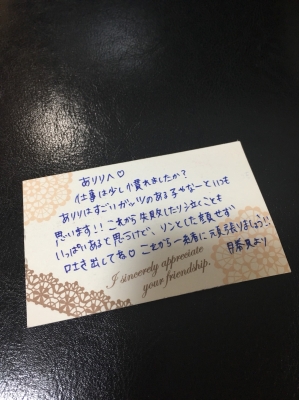 ありりへ♡
仕事は少し慣れましたか？
ありりはすごいガッツのある子やなーといつも
思います!! これから失敗したり泣くことも
いっぱいあると思うけど、リンとした顔せず
吐き出してね♡ これから一緒に頑張りましょう!!
I sincerely appreciate
your friendship.
より